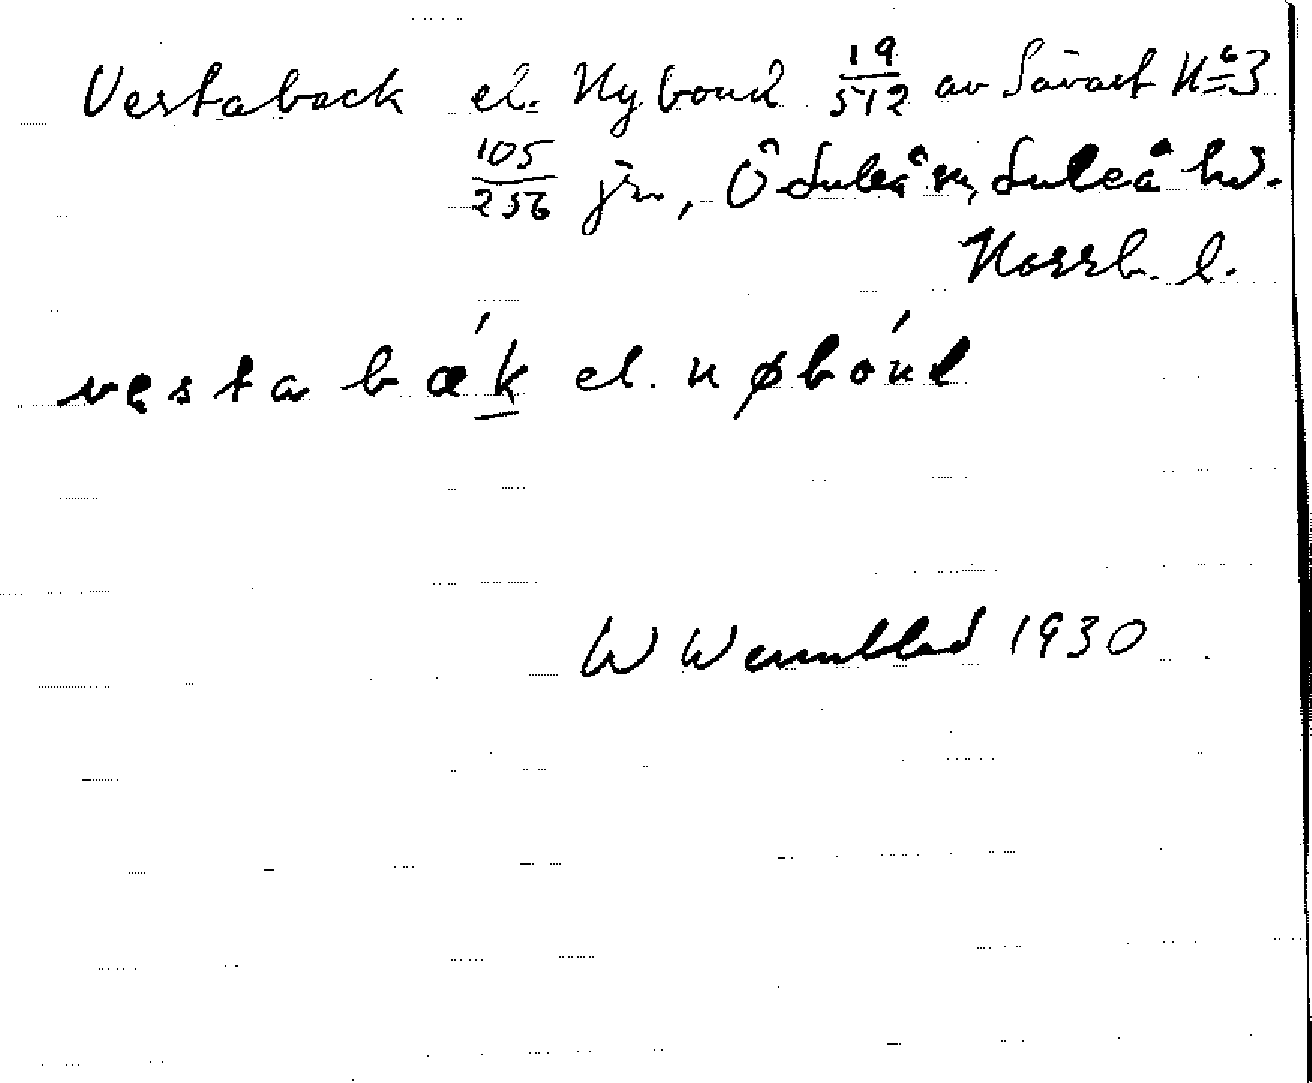 Vestaback el. Nybond 19/512 av Sävast No 3
105/256 jm, Ö Luleå sn, Luleå hd.
Norrb. l.
vęstabák el. nybónd
W Wennblad 1930